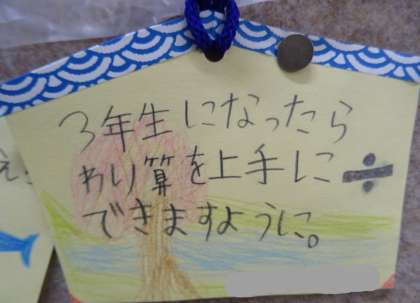 3年生になったら
わり算を上手に÷
できますように。
え